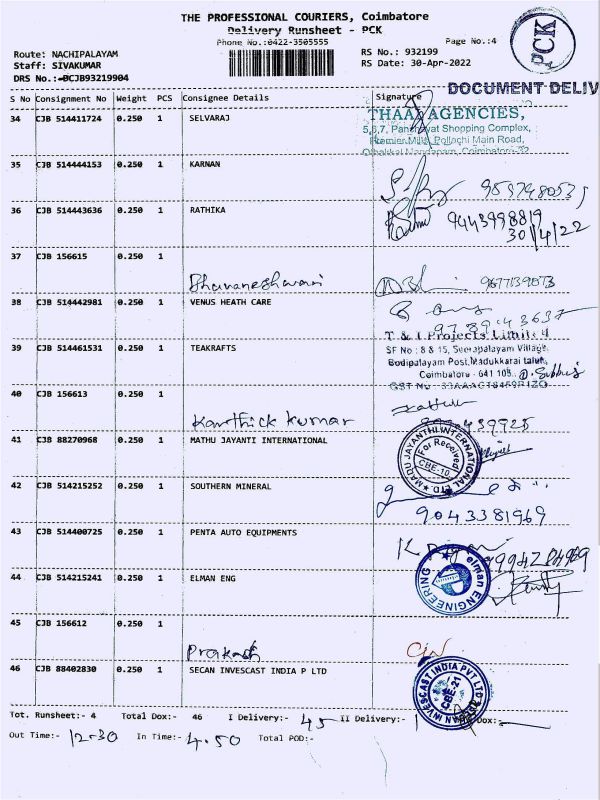 THE PROFESSIONAL COURIERS, Coimbatore
Delivery Runsheet - PCK
Phone No.:0422-3505555
Page No.:4
PCK
Route: NACHIPALAYAM
RS No.: 932199
Staff: SIVAKUMAR
RS Date: 30-Apr-2022
DRS No.:-BCJB93219904
DOCUMENT DELIV
S No Consignment No Weight PCS Consignee Details Signature
34 CJB 514411724 0.250 1 SELVARAJ
AGENCIES,
Shopping Complex,
Main Road,
35 CJB 514444153 0.250 1 KARNAN
36 CJB 514443636 0.250 1 RATHIKA
9443998819
30/4/22
37 CJB 156615 0.250 1
Bhuvaneshwari
9677139073
38 CJB 514442981 0.250 1 VENUS HEATH CARE
39 CJB 514461531 0.250 1 TEAKRAFTS
T & I Projects Limited
SF No : 8 & 15, Seerapalayam Village,
Bodipalayam Post, Madukkarai taluk,
Coimbatore - 641 105.
40 CJB 156613 0.250 1
Karthick kumar
41 CJB 88270968 0.250 1 MATHU JAYANTI INTERNATIONAL
MADU JAYANTHI INTERNATIONAL LTD
For Received
CBE-10
42 CJB 514215252 0.250 1 SOUTHERN MINERAL
9043381969
43 CJB 514400725 0.250 1 PENTA AUTO EQUIPMENTS
44 CJB 514215241 0.250 1 ELMAN ENG
elman ENGINEERING
45 CJB 156612 0.250 1
Prakash
46 CJB 88402830 0.250 1 SECAN INVESCAST INDIA P LTD
INVESCAST INDIA PVT LTD
CBE-21
Tot. Runsheet:- 4 Total Dox:- 46 I Delivery:- 45 II Delivery:- 1 Dox:-
Out Time:- 12-30 In Time:- 4.50 Total POD:-